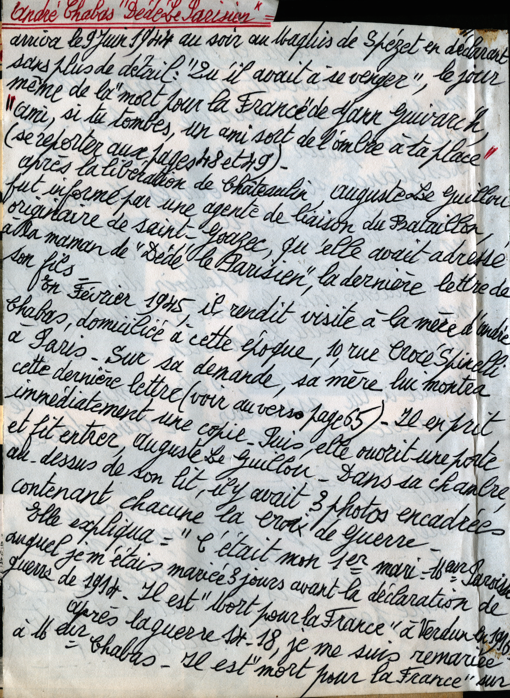 André Chabas "Dédé Le Parisien"
arriva le 9 Juin 1944 au soir au Maquis de Spézet en déclarant
sans plus de détail : "Qu'il avait à se venger", le jour
même de la "mort pour la France" de Yann Guivarc'h,
"ami, si tu tombes, un ami sort de l'ombre à ta place"
(se reporter aux pages 48 et 49) -
après la libération de Châteaulin, auguste Le Guillou
fut informé par une agente de liaison du Bataillon,
originaire de saint-Goazec, qu'elle avait adressé
à la maman de "Dédé le Parisien", la dernière lettre de
son fils -
En Février 1945, il rendit visite à la mère d'andré
Chabas, domicilié à cette époque, 10 rue Croce Spinelli
à Paris - Sur sa demande, sa mère lui montra
cette dernière lettre (voir au verso page 65) - Il en prit
immédiatement une copie - Puis, elle ouvrit une porte
et fit entrer, auguste Le Guillou - Dans sa chambre,
au-dessus de son lit, il y avait 3 photos encadrées
contenant chacune la croix de Guerre -
Elle expliqua = "C'était mon 1er mari - Mr
auquel je m'étais mariée 3 jours avant la déclaration de
guerre de 1914 - Il est "Mort pour la France" à Verdun en 1916
après la guerre 14-18, je me suis remariée
à Mr Chabas - Il est "mort pour la France" sur